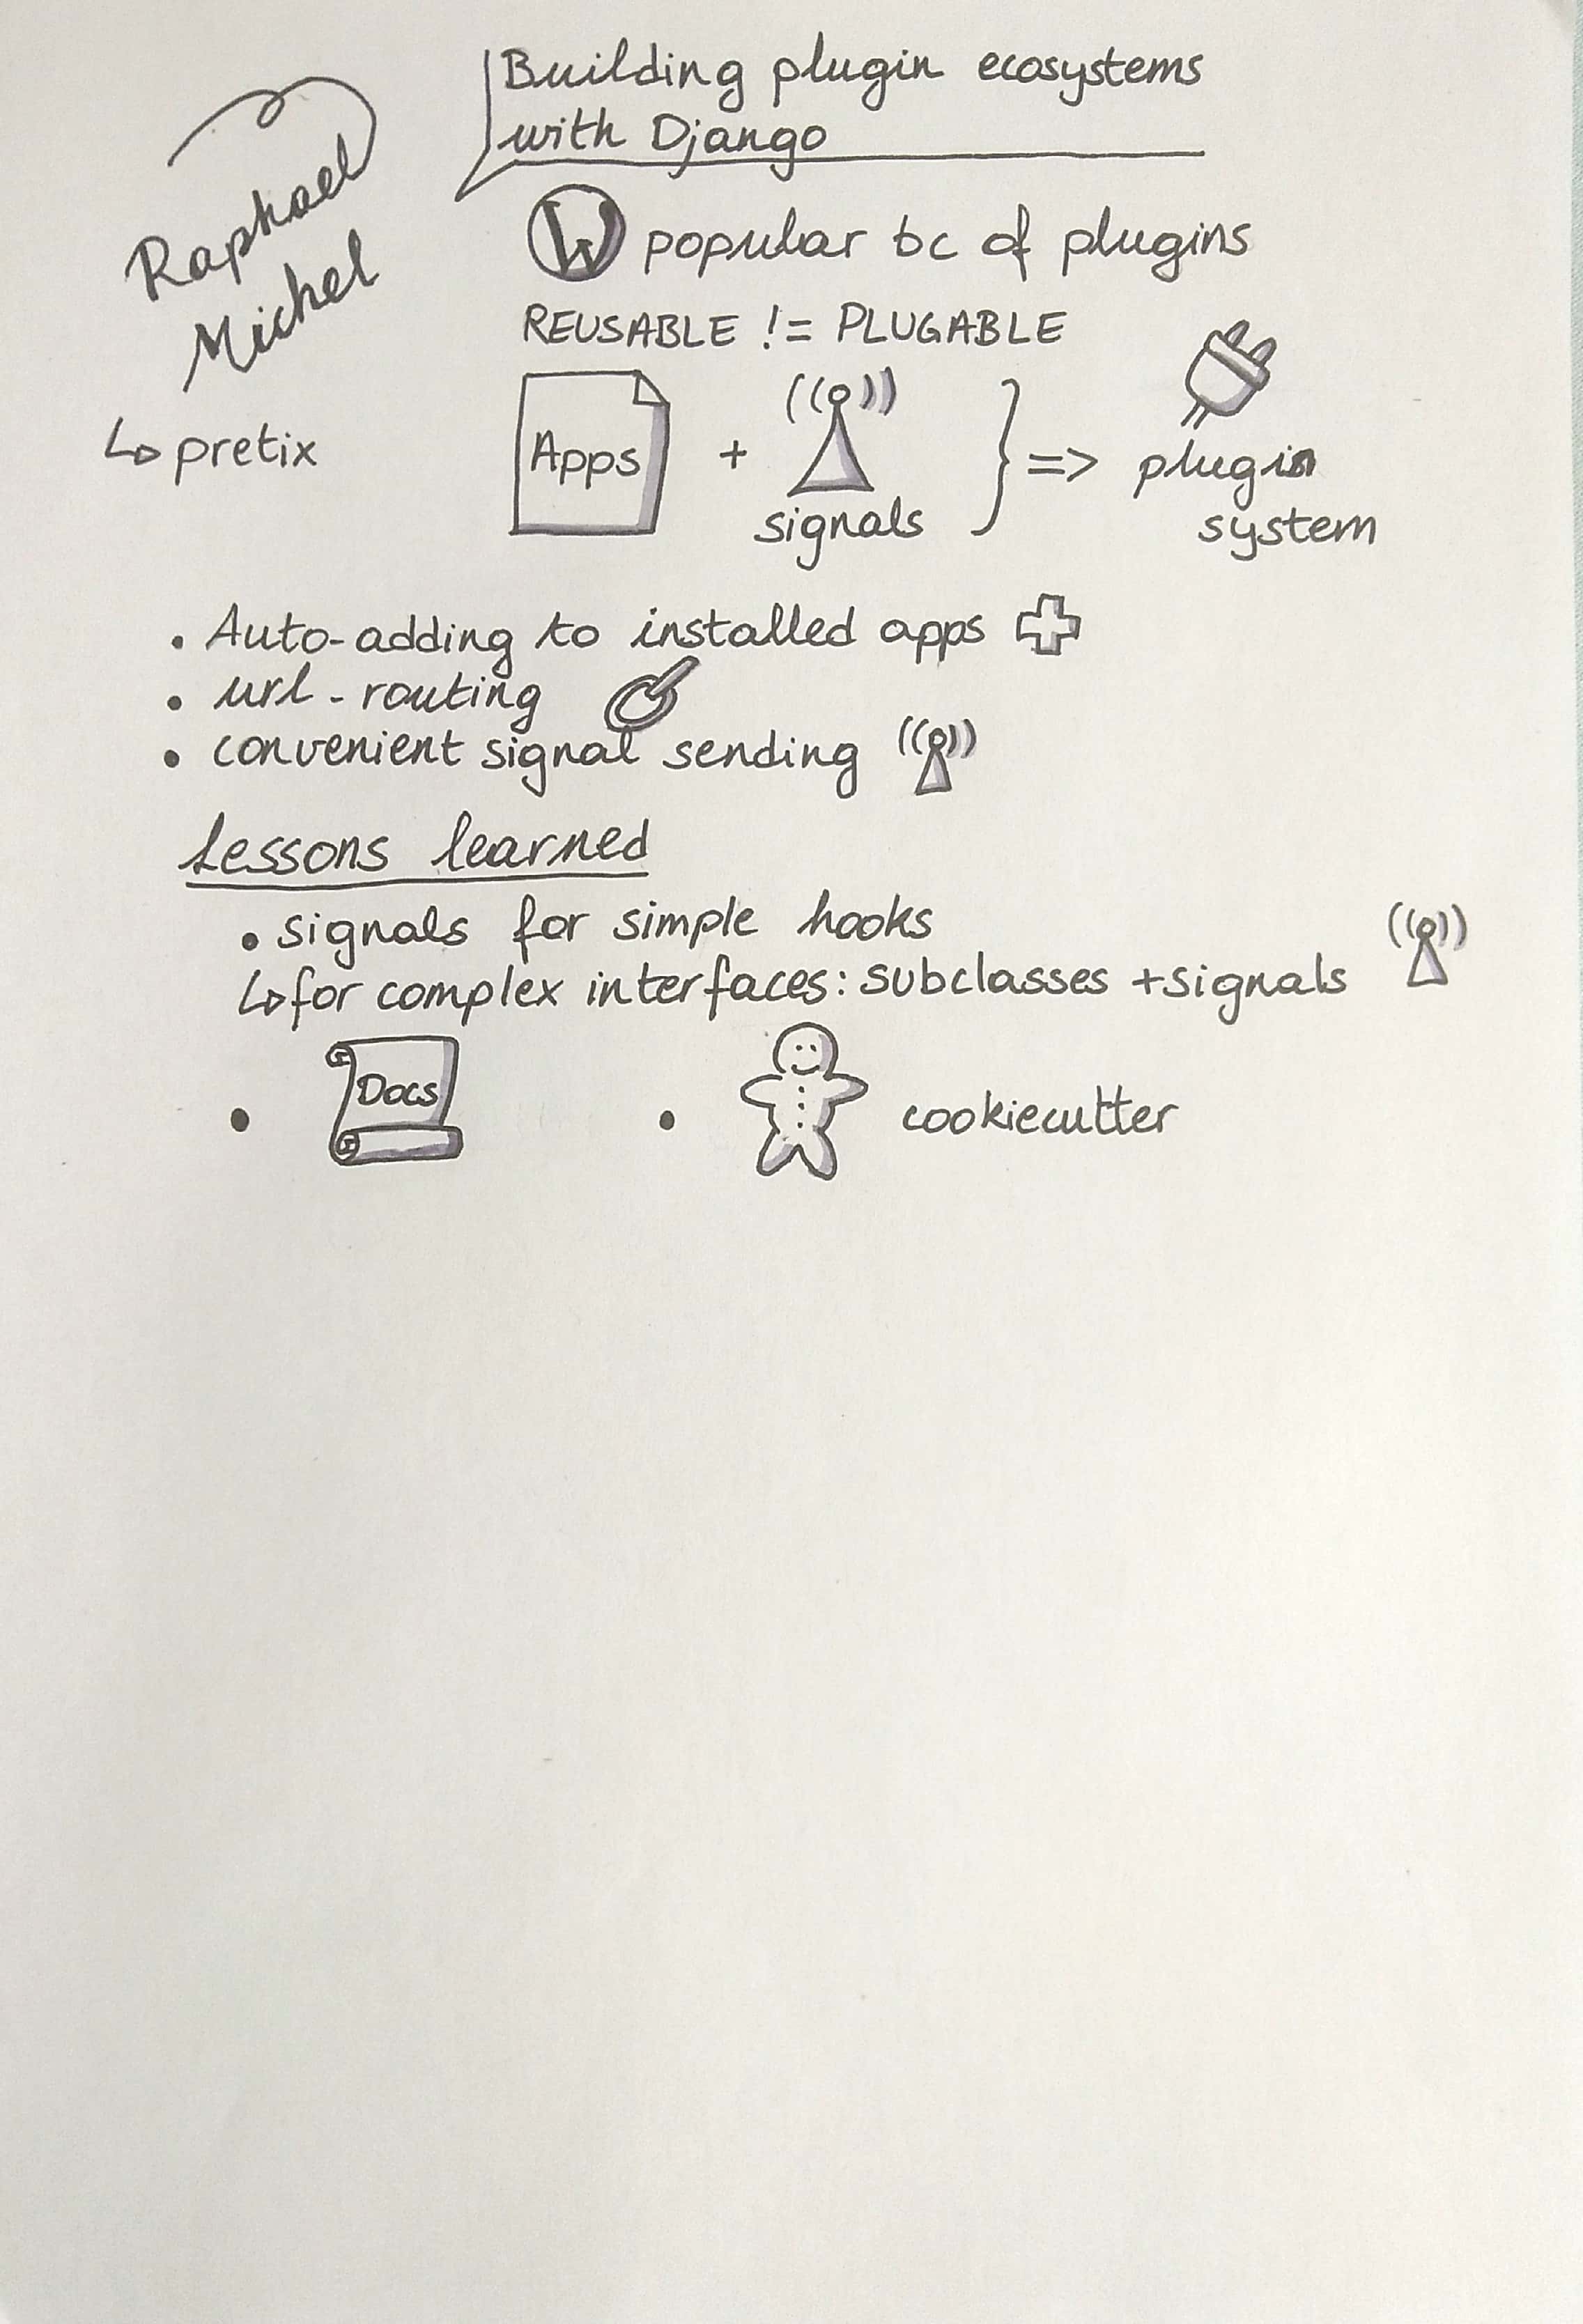 Building plugin ecosystems
with Django
Raphael
Michel
pretix
W popular bc of plugins
REUSABLE != PLUGABLE
Apps + signals } => plugin
system
• Auto-adding to installed apps
• url-routing
• convenient signal sending
Lessons learned
• signals for simple hooks
↳ for complex interfaces: subclasses + signals
• Docs
• cookiecutter